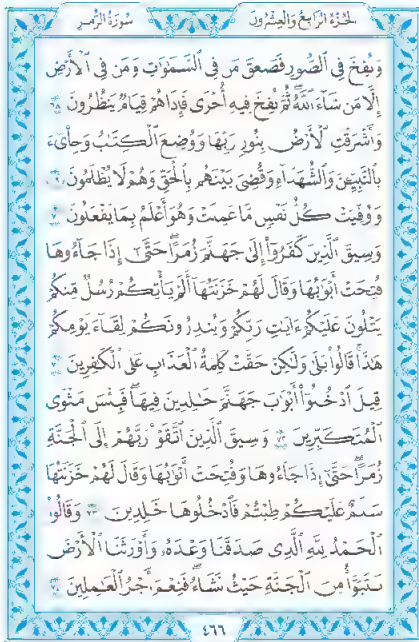 الجزء الرابع والعشرون سورة الزمر
وَنُفِخَ فِي ٱلصُّورِ فَصَعِقَ مَن فِي ٱلسَّمَٰوَٰتِ وَمَن فِي ٱلْأَرْضِ
إِلَّا مَن شَآءَ ٱللَّهُ ۖ ثُمَّ نُفِخَ فِيهِ أُخْرَىٰ فَإِذَا هُمْ قِيَامٌ يَنظُرُونَ ٦٨
وَأَشْرَقَتِ ٱلْأَرْضُ بِنُورِ رَبِّهَا وَوُضِعَ ٱلْكِتَٰبُ وَجِا۟ىٓءَ
بِٱلنَّبِيِّـۧنَ وَٱلشُّهَدَآءِ وَقُضِيَ بَيْنَهُم بِٱلْحَقِّ وَهُمْ لَا يُظْلَمُونَ ٦٩
وَوُفِّيَتْ كُلُّ نَفْسٍ مَّا عَمِلَتْ وَهُوَ أَعْلَمُ بِمَا يَفْعَلُونَ ٧٠
وَسِيقَ ٱلَّذِينَ كَفَرُوٓا۟ إِلَىٰ جَهَنَّمَ زُمَرًا ۖ حَتَّىٰٓ إِذَا جَآءُوهَا
فُتِحَتْ أَبْوَٰبُهَا وَقَالَ لَهُمْ خَزَنَتُهَآ أَلَمْ يَأْتِكُمْ رُسُلٌ مِّنكُمْ
يَتْلُونَ عَلَيْكُمْ ءَايَٰتِ رَبِّكُمْ وَيُنذِرُونَكُمْ لِقَآءَ يَوْمِكُمْ
هَٰذَا ۚ قَالُوا۟ بَلَىٰ وَلَٰكِنْ حَقَّتْ كَلِمَةُ ٱلْعَذَابِ عَلَى ٱلْكَٰفِرِينَ ٧١
قِيلَ ٱدْخُلُوٓا۟ أَبْوَٰبَ جَهَنَّمَ خَٰلِدِينَ فِيهَا ۖ فَبِئْسَ مَثْوَى
ٱلْمُتَكَبِّرِينَ ٧٢ وَسِيقَ ٱلَّذِينَ ٱتَّقَوْا۟ رَبَّهُمْ إِلَى ٱلْجَنَّةِ
زُمَرًا ۖ حَتَّىٰٓ إِذَا جَآءُوهَا وَفُتِحَتْ أَبْوَٰبُهَا وَقَالَ لَهُمْ خَزَنَتُهَا
سَلَٰمٌ عَلَيْكُمْ طِبْتُمْ فَٱدْخُلُوهَا خَٰلِدِينَ ٧٣ وَقَالُوا۟
ٱلْحَمْدُ لِلَّهِ ٱلَّذِي صَدَقَنَا وَعْدَهُۥ وَأَوْرَثَنَا ٱلْأَرْضَ
نَتَبَوَّأُ مِنَ ٱلْجَنَّةِ حَيْثُ نَشَآءُ ۖ فَنِعْمَ أَجْرُ ٱلْعَٰمِلِينَ ٧٤
٤٦٦